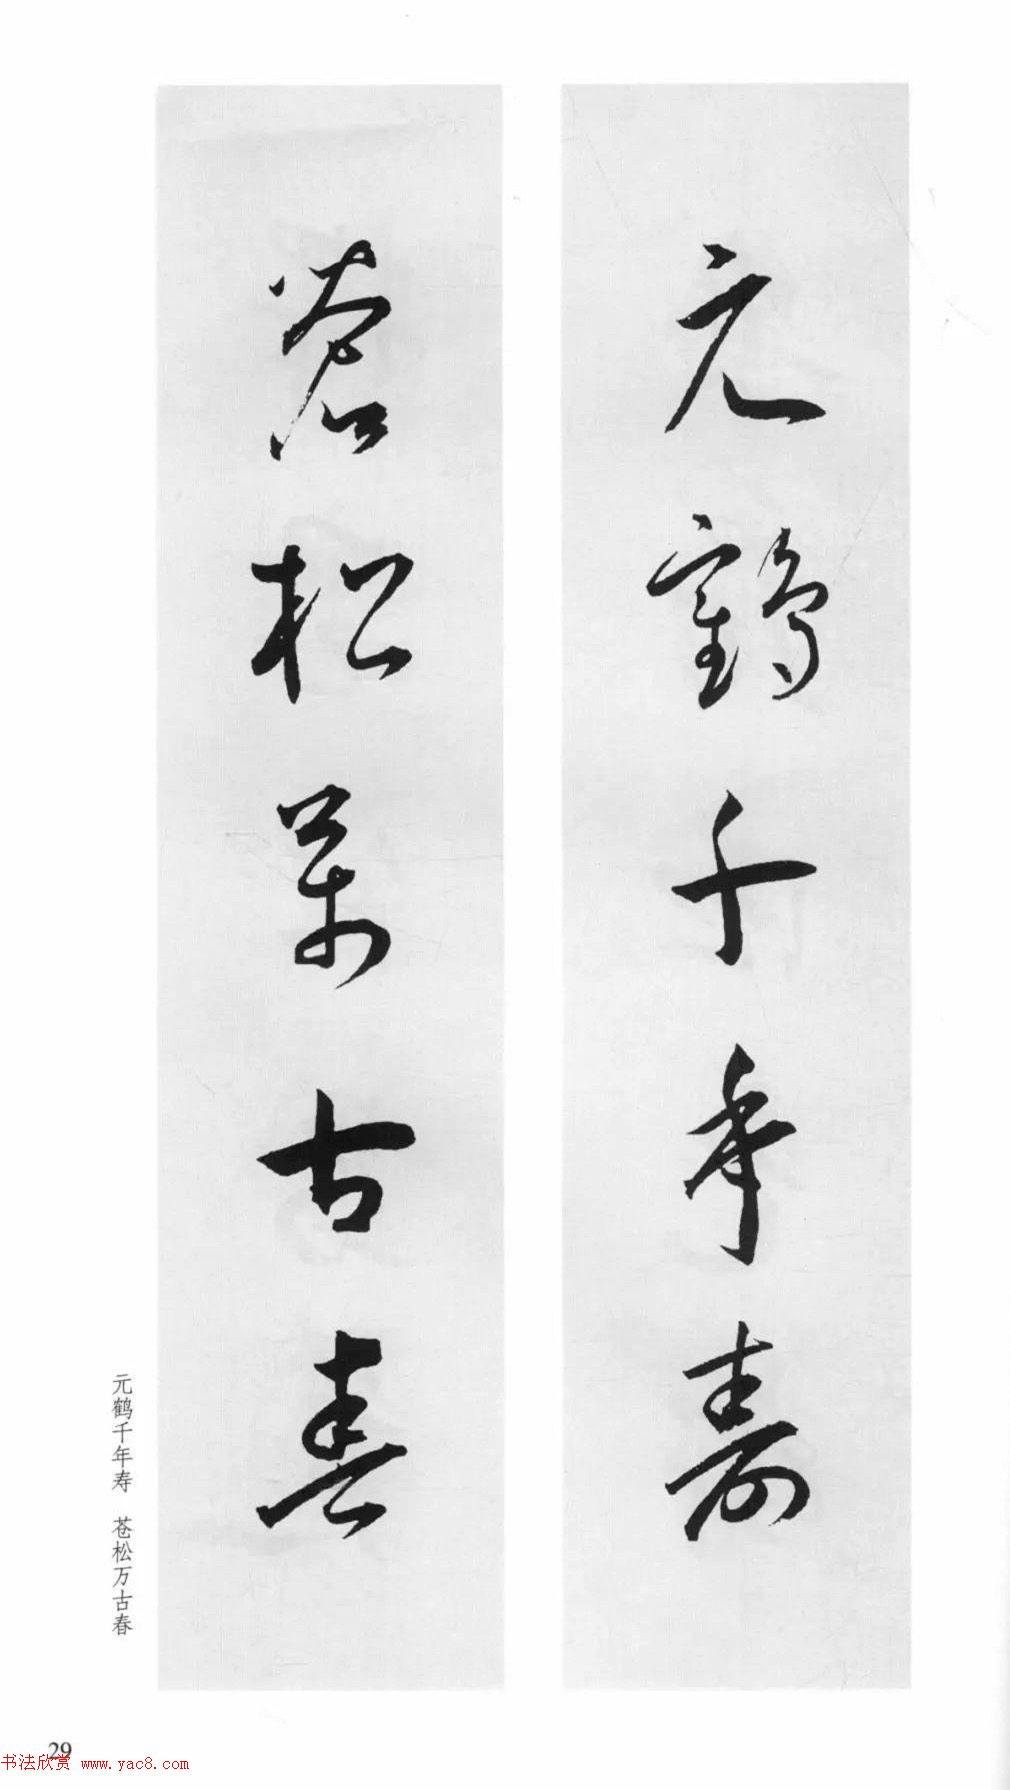 元鶴千年壽
蒼松萬古春
元鹤千年寿 苍松万古春
29
书法欣赏 www.yac8.com